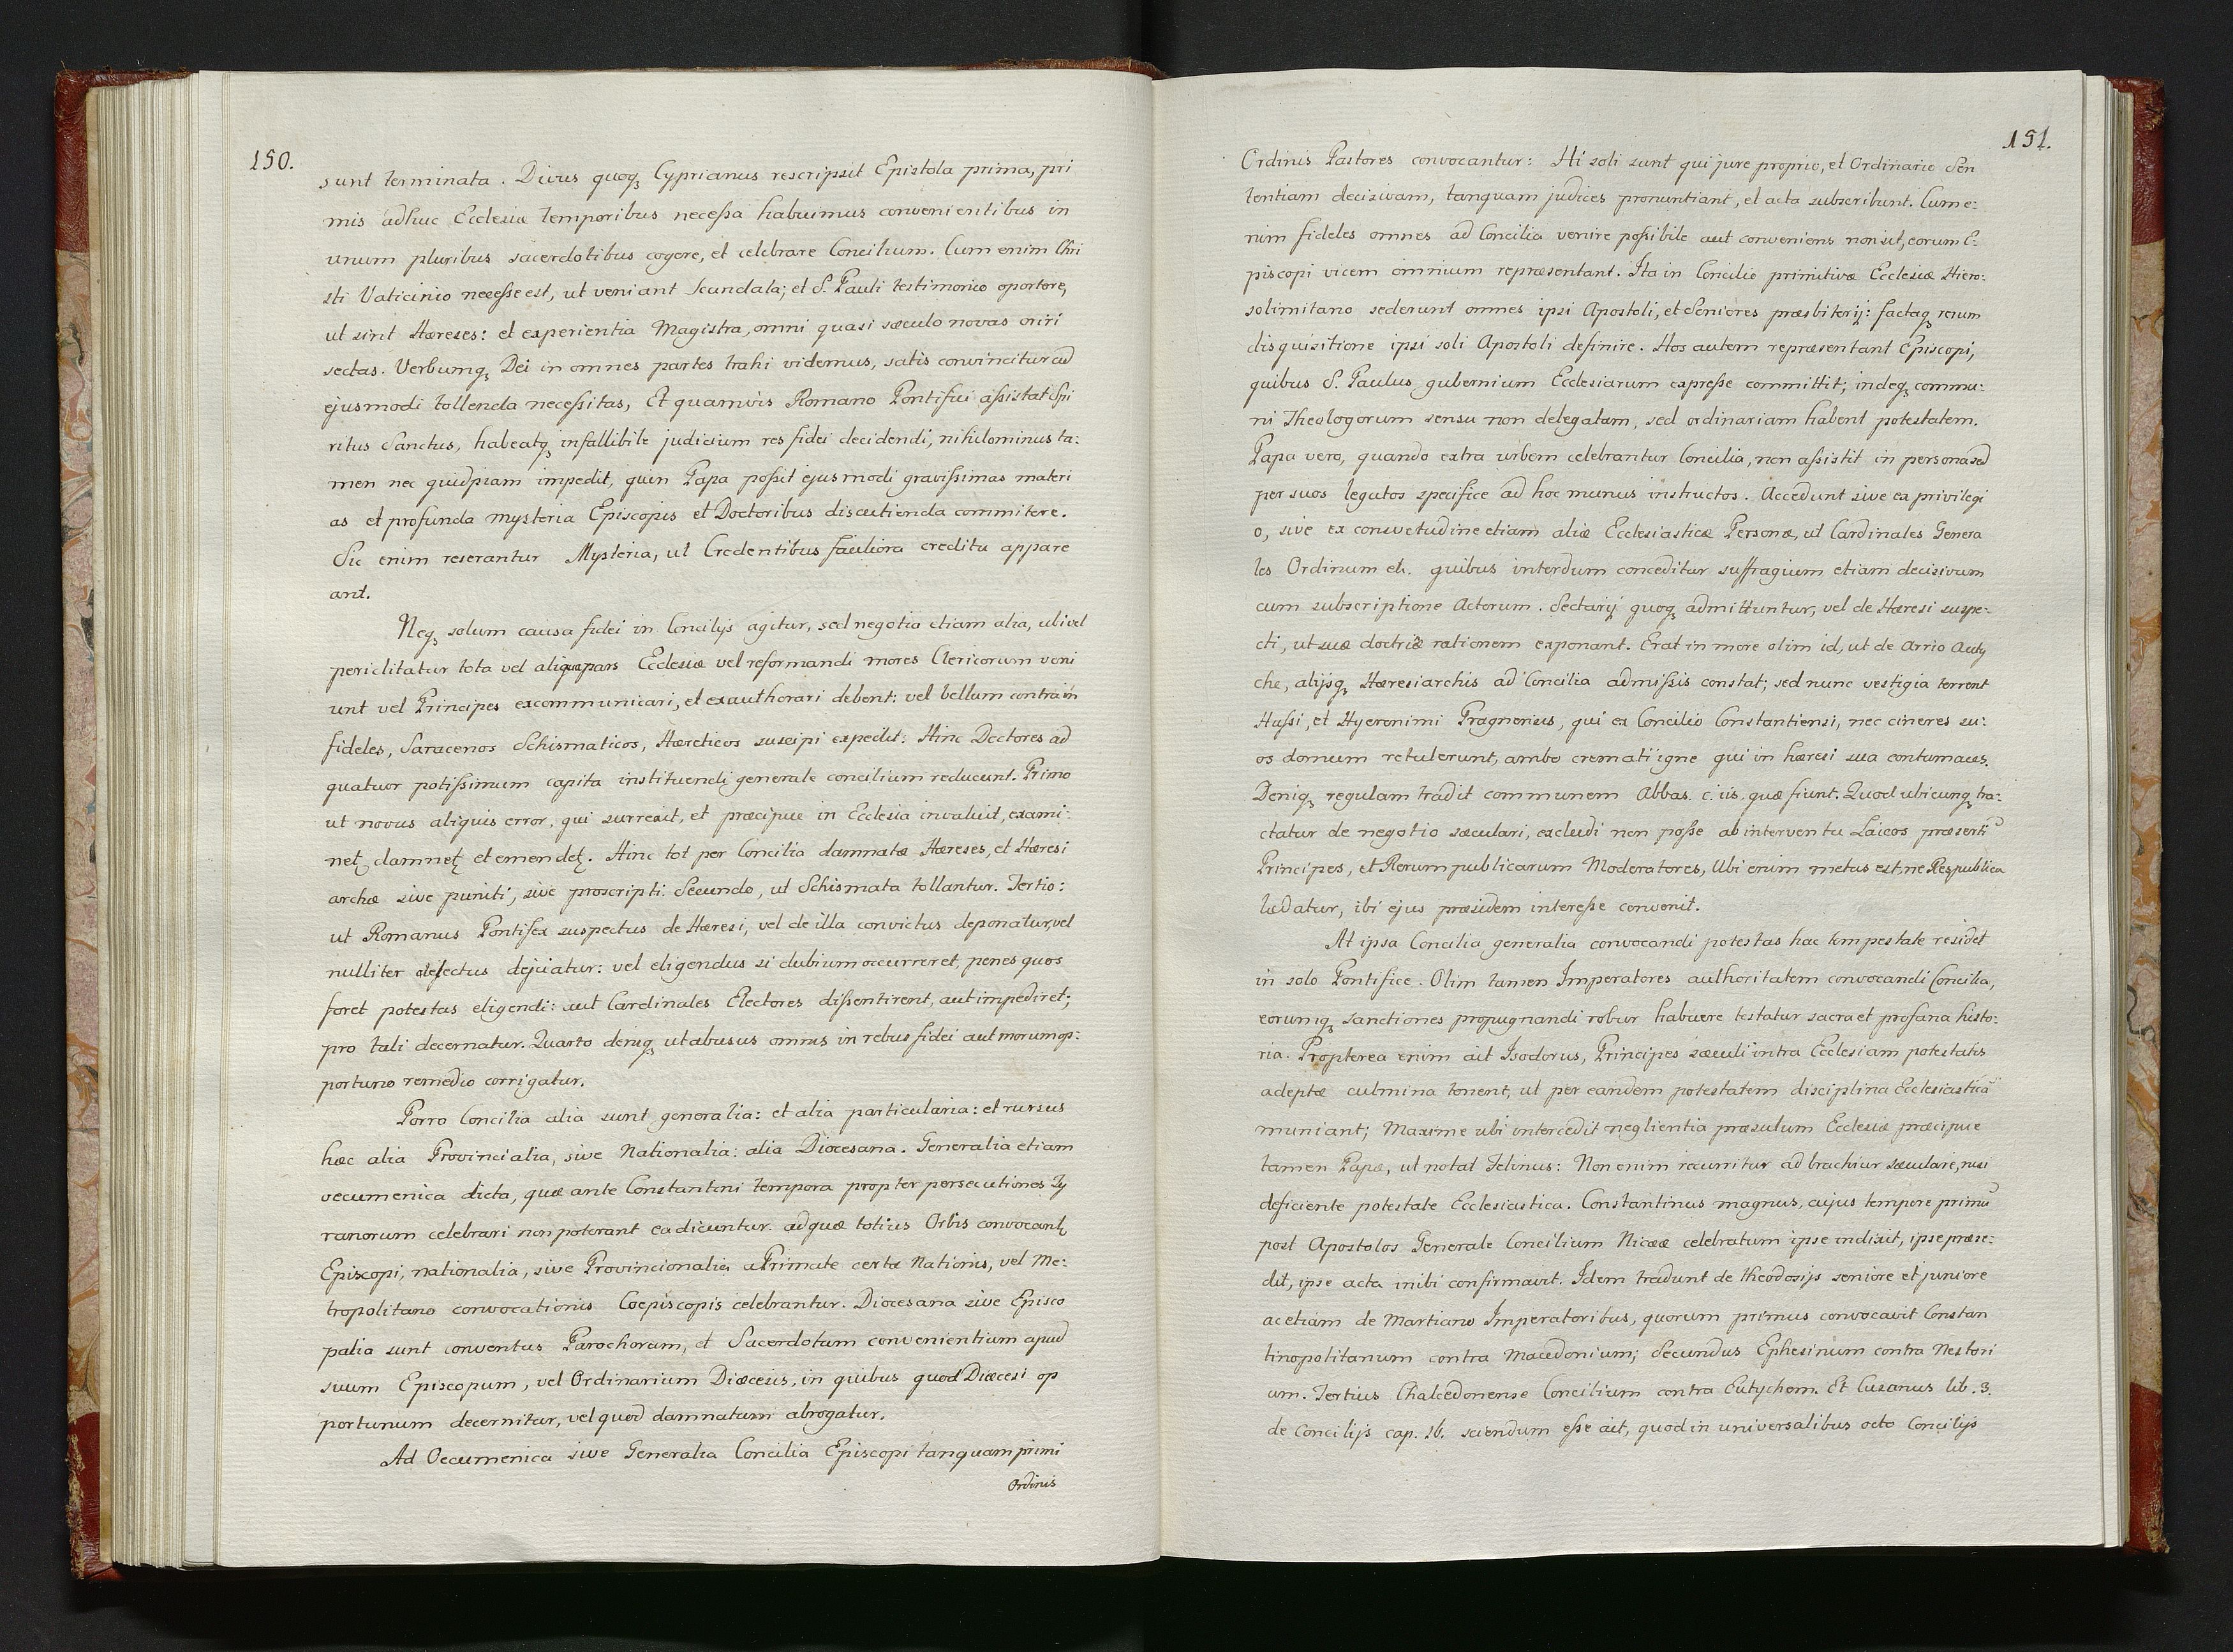 150.
sunt terminata. Divus quoq₃ Cyprianus rescripsit Epistola prima, pri
mis adhuc Ecclesiæ temporibus necessa habuimus convenientibus in
unum pluribus sacerdotibus cogere, et celebrare Concilium. Cum enim Chri
sti Vaticinio necesse est, ut veniant Scandala; et S. Pauli testimonio oportere,
ut sint Hæreses: et experientia Magistra, omni quasi sæculo novas oriri
sectas. Verbumq₃ Dei in omnes partes trahi videmus, satis convincitur ad
ejusmodi tollenda necessitas, Et quamvis Romano Pontifici assistat Spi
ritus Sanctus, habeatq₃ infallibile judicium res fidei decidendi, nihilominus ta:
men nec quidpiam impedit, quin Papa possit ejusmodi gravissimas materi
as et profunda mysteria Episcopis et Doctoribus discutienda commitere.
Sic enim reserantur Mysteria, ut Credentibus faciliora creditu appare
ant.
Neq₃ solum causa fidei in Concilijs agitur, sed negotia etiam alia, ubi vel
periclitatur tota vel aliqua pars Ecclesiæ vel reformandi mores Clericorum veni
unt vel Principes excommunicari, et exauthorari debent: vel bellum contra in
fideles, Saracenos Schismaticos, Hæreticos suscipi expedit. Hinc Doctores ad
quatuor potissimum capita instituendi generale concilium reducunt. Primo
ut novus aliquis error, qui surrexit, et præcipue in Ecclesia invaluit, exami:
netʒ damnetʒ et emendetʒ. Hinc tot per Concilia damnatæ Hæreses, et Hæresi
archæ sive puniti, sive proscripti. Secundo, ut Schismata tollantur. Tertio:
ut Romanus Pontifex suspectus de Hæresi, vel de illa convictus deponatur, vel
nulliter electus dejiciatur: vel eligendus si dubium occurreret, penes quos
foret potestas eligendi: aut Cardinales Electores dissentirent, aut impediret;
pro tali decernatur. Quarto deniq₃ ut abusus omnis in rebus fidei aut morum op:
portuno remedio corrigatur.
Porro Concilia alia sunt generalia: et alia particularia: et rursus
hæc alia Provincialia, sive Nationalia: alia Diœcesana. Generalia etiam
oecumenica dicta, quæ ante Constantini tempora propter persecutiones Ty
ranorum celebrari non poterant ea dicuntur. ad quæ totius Orbis convocantʒ
Episcopi, nationalia, sive Provincionalia a Primate certæ Nationis, vel Me:
tropolitano convocationis Coepiscopis celebrantur. Diocesana sive Episco
palia sunt conventus Parochorum, et Sacerdotum convenientium apud
suum Episcopum, vel Ordinarium Diœcesis, in quibus quod Diœcesi op
portunum decernitur, vel quod damnatum abrogatur.
Ad Oecumenica sive Generalia Concilia Episcopi tanquam primi
Ordinis
151.
Ordinis Pastores convocantur: Hi soli sunt qui jure proprio, et Ordinario Sen
tentiam decisivam, tanquam judices pronuntiant, et acta subscribunt. Cum e:
nim fideles omnes ad Concilia venire possibile aut conveniens non sit, eorum E:
piscopi vicem omnium repræsentant. Ita in Concilio primitivæ Ecclesiæ Hiero:
solimitano sederunt omnes ipsi Apostoli, et Seniores præsbiterij: factaq₃ rerum
disquisitione ipsi soli Apostoli definire. Hos autem repræsentant Episcopi,
quibus S. Paulus gubernium Ecclesiarum expresse committit; indeq₃ commu:
ni Theologorum sensu non delegatam, sed ordinariam habent potestatem.
Papa vero, quando extra urbem celebrantur Concilia, non assistit in persona sed
per suos legatos specifice ad hoc munus instructos. Accedunt sive ex privilegi
o, sive ex conwetudine etiam aliæ Ecclesiasticæ Personæ, ut Cardinales Genera
les Ordinum etc. quibus interdum conceditur suffragium etiam decisivum
cum subscriptione Actorum. Sectarij quoq₃ admittuntur, vel de Hæresi suspe:
cti, ut suæ doctriæ rationem exponant. Erat in more olim id, ut de Arrio Auty
che, alijsq₃ Hæresiarchis ad Concilia admissis constat; sed nunc vestigia terrent
Hussi, et Hyeronimi Pragnensis, qui ex Concilio Constantiensi, nec cineres su:
os domum retulerunt, ambo cremati igne qui in hæresi sua contumaces.
Deniq₃ regulam tradit communem Abbas. c. iis. quæ fiunt. Quod ubicunq₃ tra:
ctatur de negotio sæculari, excludi non posse ab interventu Laicos præserti
Principes, et Rerumpublicarum Moderatores, Ubi enim metus est, ne Respublica
lædatur, ibi ejus præsidem interesse convenit.
At ipsa Concilia generalia convocandi potestas hac tempestate residet
in solo Pontifice. Olim tamen Imperatores authoritatem convocandi Concilia,
eorumq₃ sanctiones propugnandi robur habuere testatur sacra et profana histo:
ria. Propterea enim ait Isodorus, Principes sæculi intra Ecclesiam potestatis
adeptæ culmina tenent, ut per eandem potestatem disciplina Ecclesiasticã
muniant; Maxime ubi intercedit neglientia præsulum Ecclesiæ præcipue
tamen Papæ, ut notat Felinus: Non enim recurritur ad brachiur sæculare, nisi
deficiente potestate Ecclesiastica. Constantinus magnus, cujus tempore primũ
post Apostolos Generale Concilium Nicææ celebratum ipse indixit, ipse præse:
dit, ipse acta inibi confirmavit. Idem tradunt de Theodosijs seniore et juniore
ac etiam de Martiano Imperatoribus, quorum primus convocavit Constan
tinopolitanum contra Macedonium; Secundus Ephesinum contra Nestori
um. Tertius Chalcedonense Concilium contra Eutychem. Et Cusanus lib. 3.
de Concilijs cap. 16. sciendum esse ait, quod in universalibus octo Concilijs